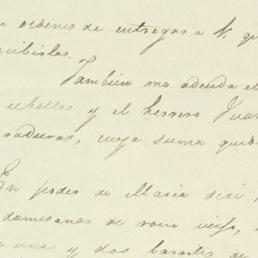 ordenes de entregas a N. qu
cibirlas.
Tambien me adeuda el
cebollas y el herrero Juan
raduras, cuya suma qued
En poder de Maria deji
damesanas de rom viejo,
una y dos barriles de